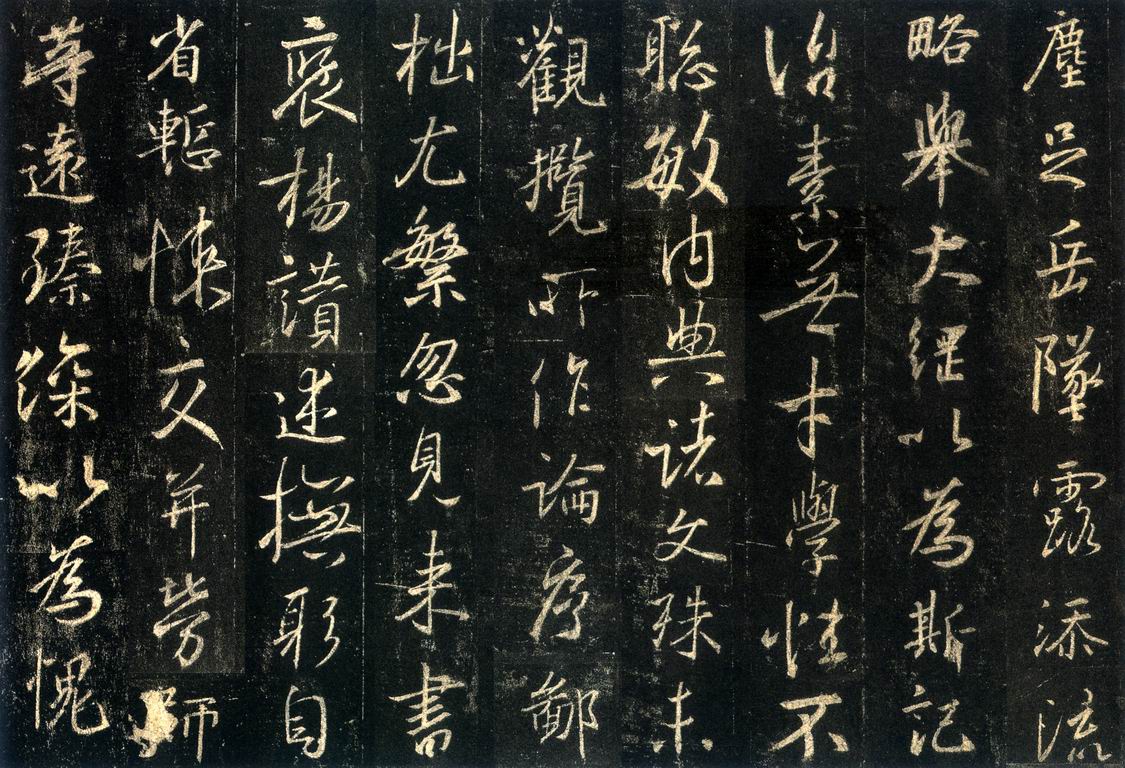 塵足岳墜露添流
略舉大綱以為斯記
治素無才學性不
聡敏内典諸文殊未
觀攬所作論序鄙
拙尤繁忽見来書
褒揚讃述撫躬自
省慙悚交并勞師
等遠臻深以為愧